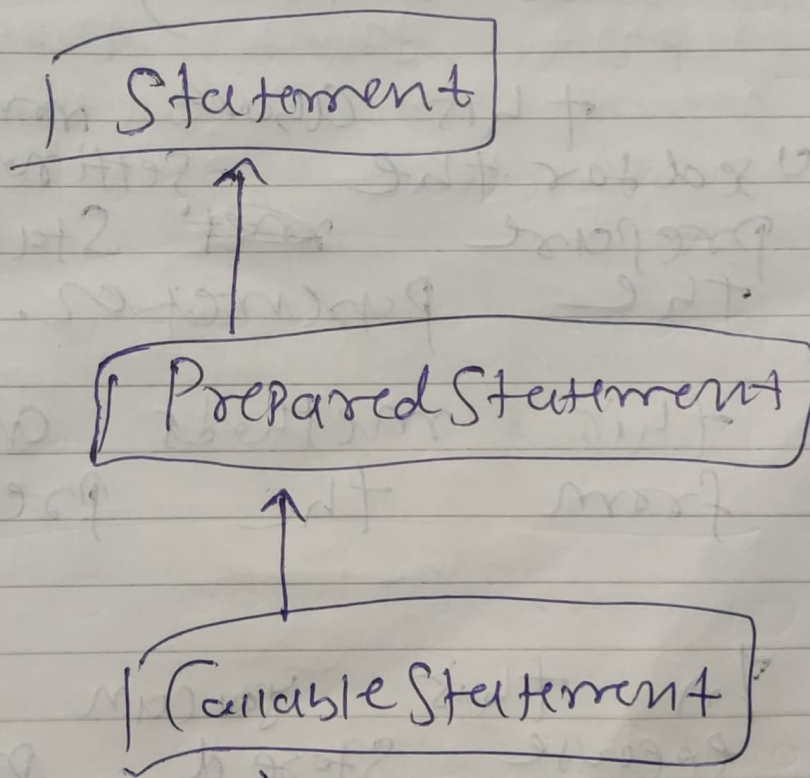 Statement
PreparedStatement
CallableStatement